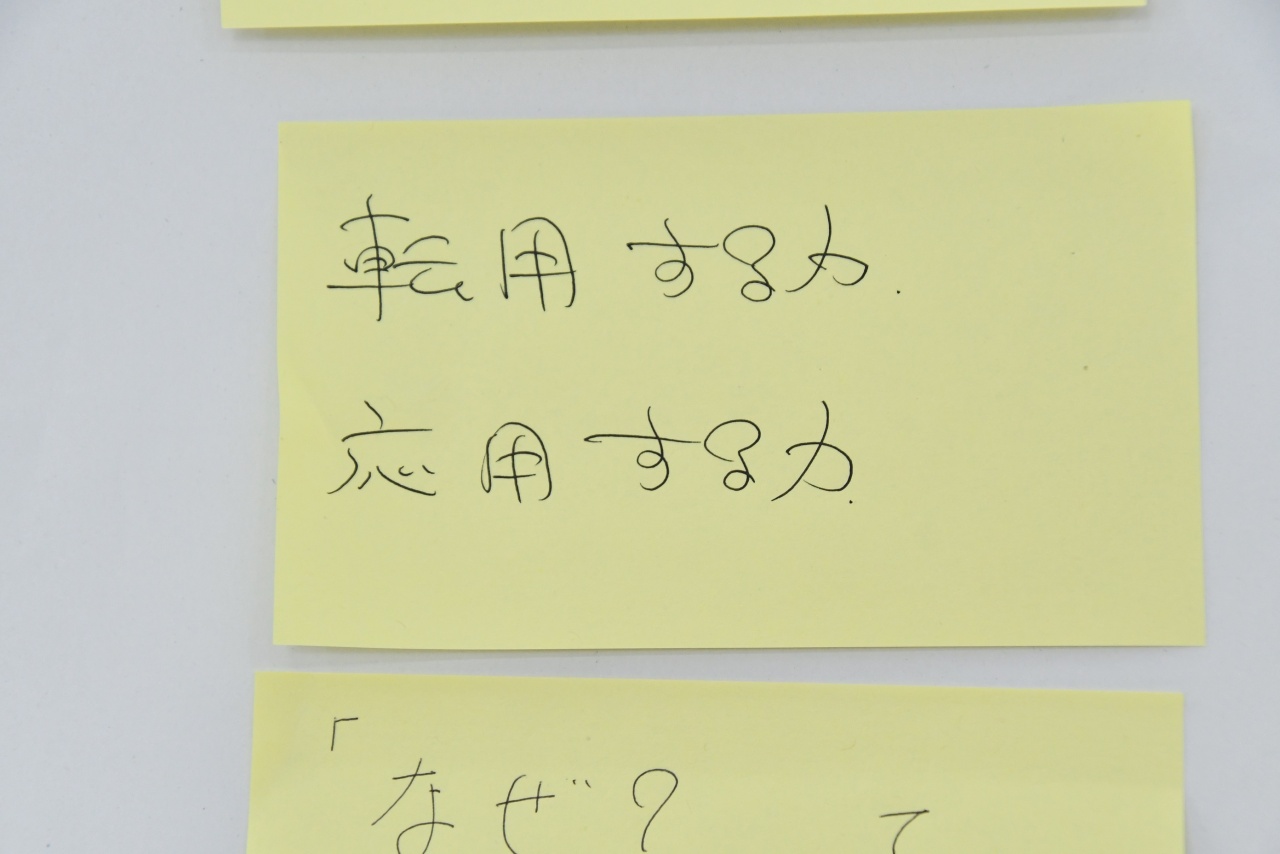 転用する力.
応用する力.
「なぜ?